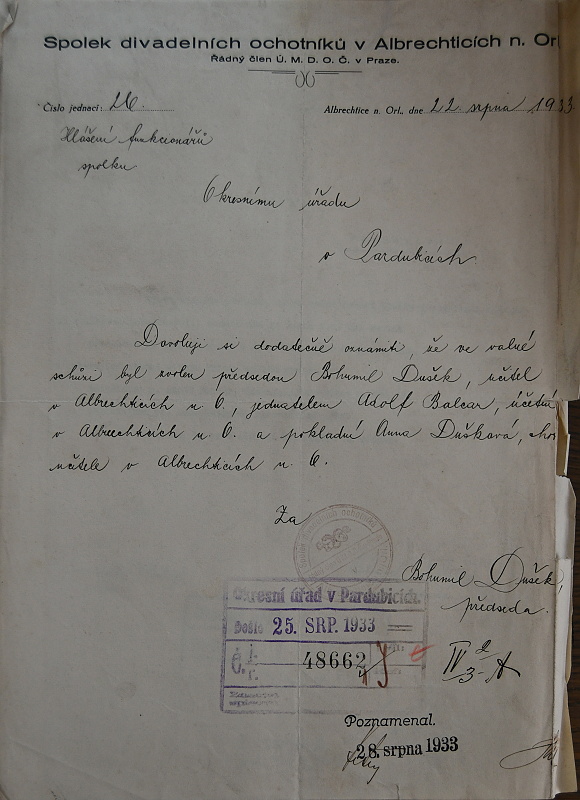 Spolek divadelních ochotníků v Albrechticích n. Orl
Řádný člen Ú. M. D. O. Č. v Praze.
Číslo jednací: 26.
Albrechtice n. Orl., dne 22. srpna 1933
Hlášení funkcionářů
spolku
Okresnímu úřadu
v Pardubicích
Dovoluji si dodatečně oznámiti, že ve valné
schůzi byl zvolen předsedou Bohumil Dušek, učitel
v Albrechticích n. O., jednatelem Adolf Balcar, účetní
v Albrechticích n. O. a pokladní Anna Dušková, cho
učitele v Albrechticích n. O.
Za
Bohumil Dušek,
předseda.
Okresní úřad v Pardubicích.
Došlo 25. SRP. 1933
Č. j. 48662
IV
3-A
Poznamenal.
28. srpna 1933